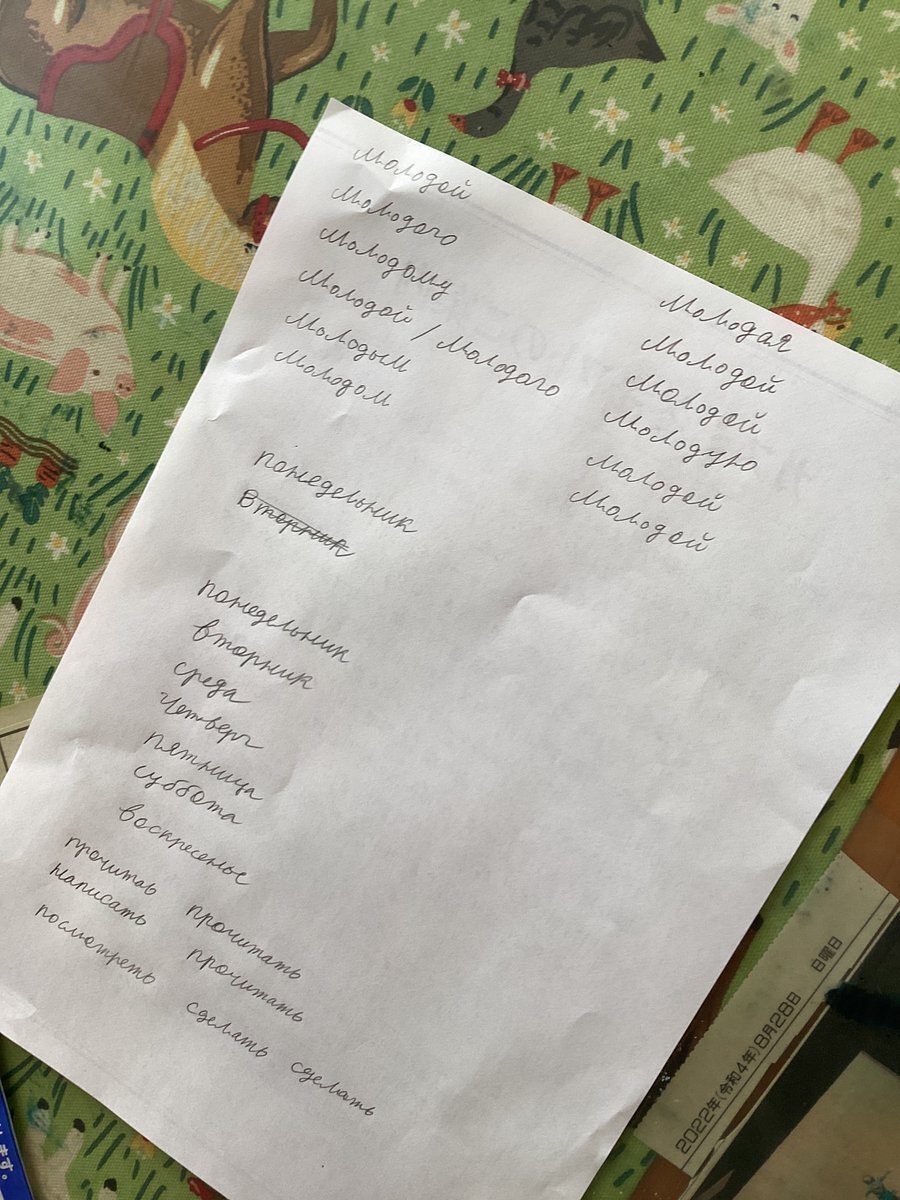 Молодой
Молодого
Молодому
Молодой / Молодого
Молодым
Молодом
Молодая
Молодой
Молодой
Молодую
Молодой
Молодой
понедельник
Вторник
понедельник
вторник
среда
Четверг
пятница
суббота
воскресенье
прочитав
написать
посмотреть
прочитать
прочитать
сделать сделать
2022年(令和4年)8月28日 日曜日
ます。